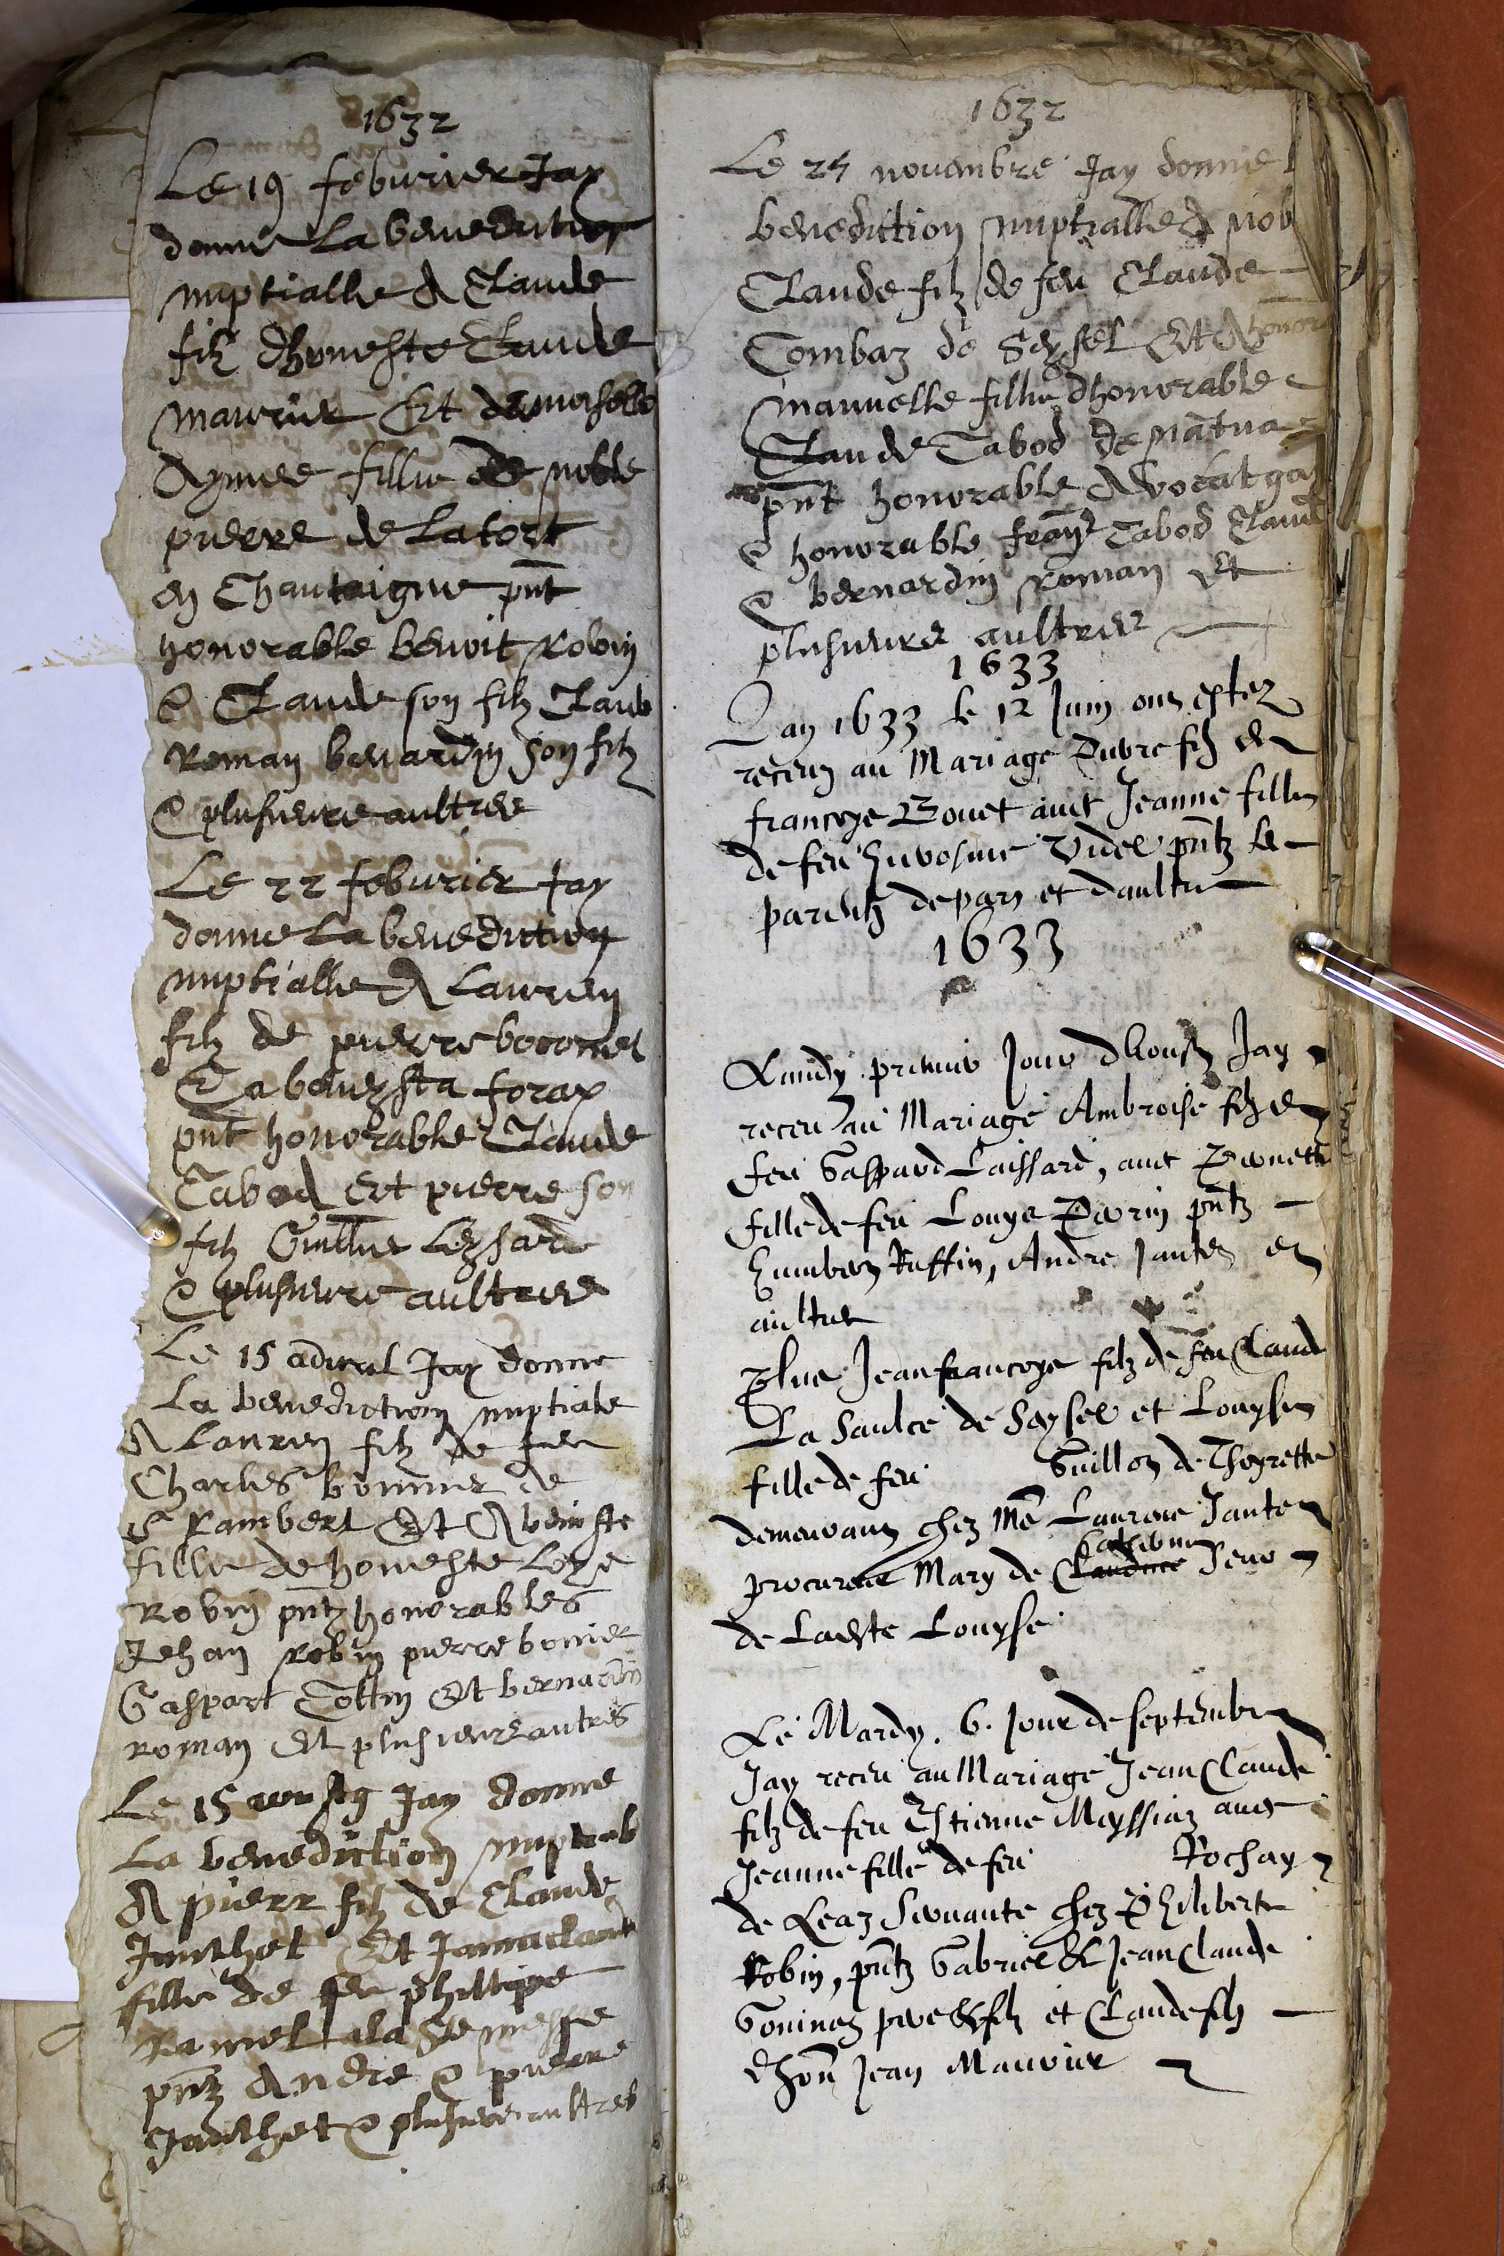 1632
Le 19 feburier Jay
donne La benediction
nuptialle A Claude
filz dhoneste Claude
maurier Et damoiselle
Aymee fillie de noble
pierre de Latort
en Chautaigne pnt
honorable benoit Robin
& Claude son filz Claude
Roman benardin son filz
& plusieurs aultres
Le 22 feburier Jay
donne La benediction
nuptialle A Lauren
filz de pierre
Et a forax
pnt honorable Claude
Tabod Et pierre son
filz Guillme Leysard
& plusieurs aultres
Le 15 apvril Jay donne
La benediction nuptiale
A Lauren filz de feu
Charles bonnier de
S Rambert Et A
fillie de honeste Loys
Robin pntz honorables
Jehan Robin pierre bonier
Gaspart Cottin Et bernardin
roman Et plusieurs autres
Le 15 Jay donne
La benediction
A pierr filz de Claude
Janthet Et
fille de feu philippe
Ramel a la Ste messe
pntz Andre & pierre
Janthet & plusieurs aultres
1632
Le 25 novembre Jay donne
benediction nuptialle A nob
Claude filz de feu Claude
Combaz de Seyssel Et A honor
manuelle fillie dhonorable
Claude Tabod de nantua
pnt honorable Advocat
& honorable Tabod Claude
& bernardin Roman Et
plusieurs aultres
1633
Lan 1633 le 12 Juin ont estez
receuz au Mariage Pierre filz de
francoys Bovet avec Jeanne fillie
de feu videl pntz le
parentz de pars et daultre
1633
Lundy premier Jour dAoust Jay
receu au Mariage Ambroise filz de
feu Gaspard Laissard, avec Pernette
fille de feu Louys Perrin pntz
humbert Ruffin, Andre Jantet et
aultres
Plus Jean francoys filz de feu Claude
La Saulce de Seyssel et Louyse
fille de feu Guillon de Thoyrette
demeurant chez Me Laurens Jantet
procureur Mary de Catherine Claudine Seur
de Ladte Louyse
Le Mardy. 6. jour de septembre
Jay receu au Mariage Jean Claude
filz de feu Estienne Meyssiaz avec
Jeanne fille de feu Rochay
de Leaz Servante chez Philibert
Robin, pntz Gabriel & Jean Claude
Goninet pere & filz et Claude filz
dhon Jean Maurier